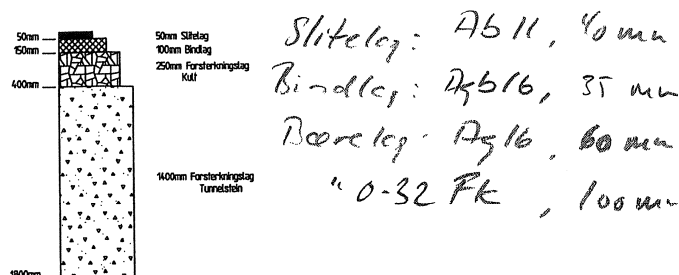 50mm
150mm
400mm
1800mm
50mm Slitelag
100mm Bindlag
250mm Forsterkningslag
Kult
1400mm Forsterkningslag
Tunnelstein
Slitelag: Ab 11, 40 mm
Bindlag: Agb 16, 35 mm
Bærelag: Ag 16, 60 mm
" 0-32 Fk, 100 mm